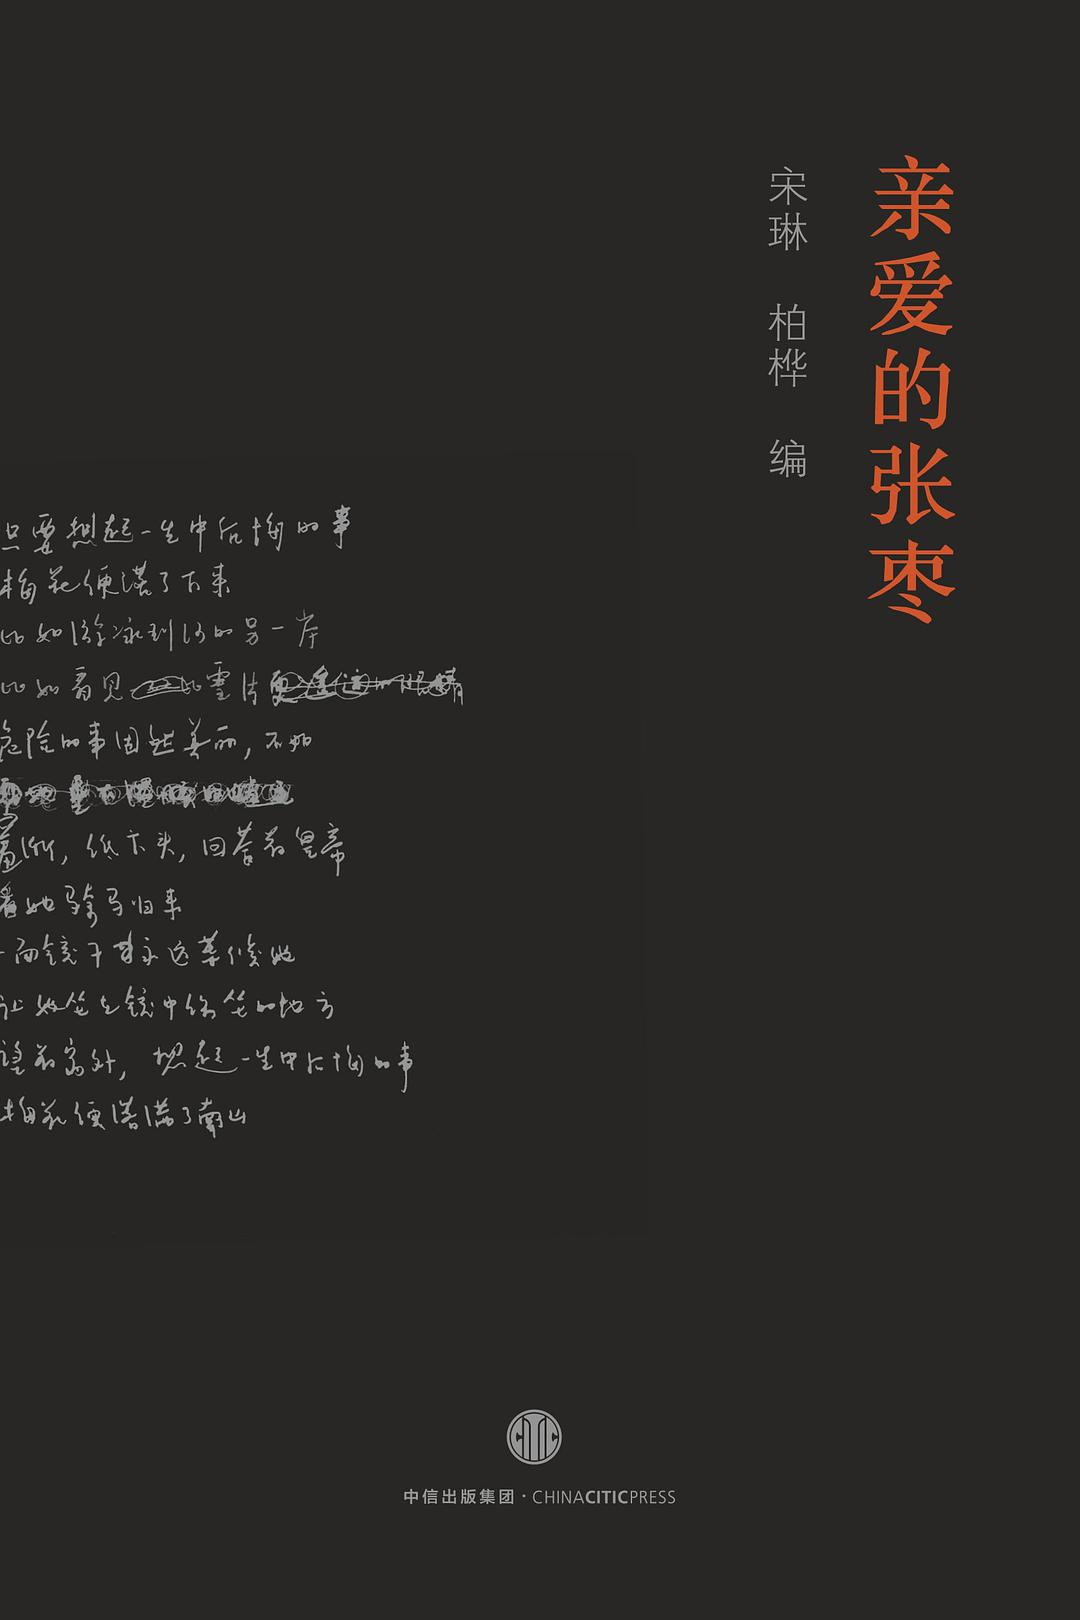 亲爱的张枣
宋琳 柏桦 编
只要想起一生中后悔的事
梅花便落了下来
比如游泳到河的另一岸
比如看见 比雪片
危险的事固然美丽,不如
羞惭,低下头,回答着皇帝
看她骑马归来
一面镜子永远等候她
让她坐在镜中你坐的地方
望着窗外,想起一生中后悔的事
梅花便落满了南山
中信出版集团·CHINACITICPRESS